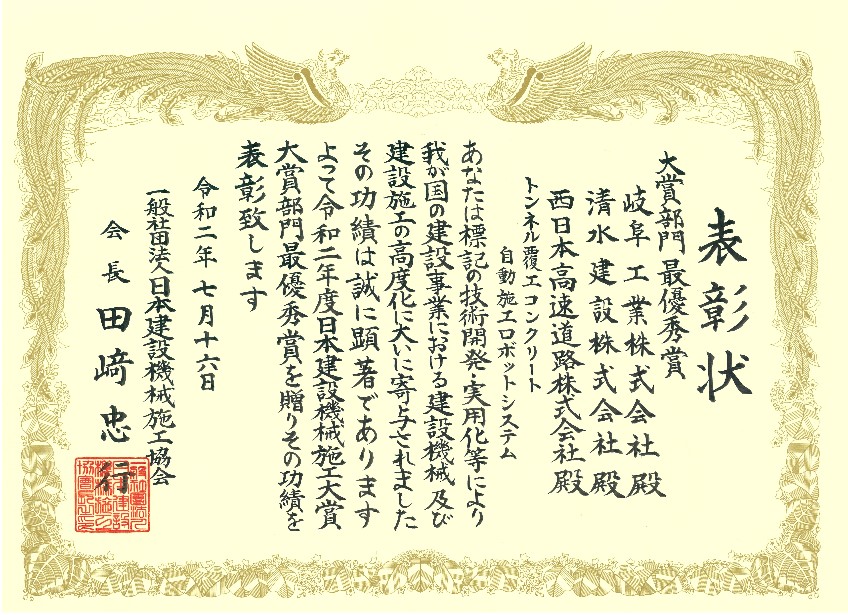 表彰状
大賞部門 最優秀賞
岐阜工業株式会社殿
清水建設株式会社殿
西日本高速道路株式会社殿
トンネル覆工コンクリート
自動施工ロボットシステム
あなたは標記の技術開発・実用化等により
我が国の建設事業における建設機械及び
建設施工の高度化に大いに寄与されました
その功績は誠に顕著であります
よって令和二年度日本建設機械施工大賞
大賞部門最優秀賞を贈りその功績を
表彰致します
令和二年七月十六日
一般社団法人日本建設機械施工協会
会長 田﨑忠行